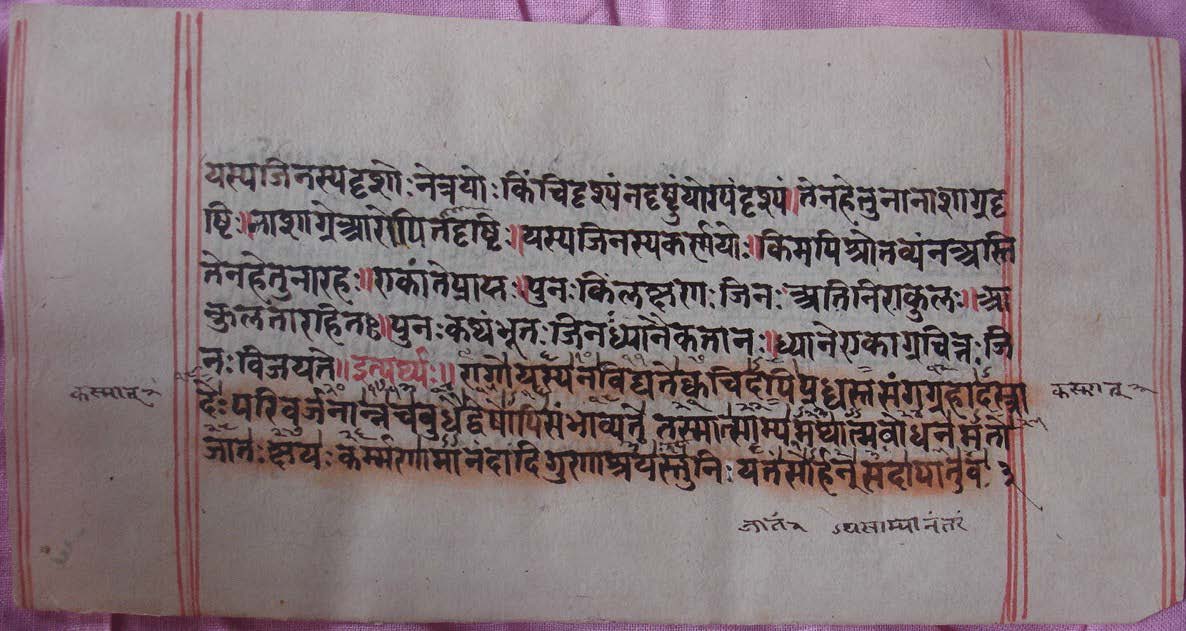 यस्यजिनस्यदृशोः नेत्रयोः किंचिदृश्यं नदृष्टुंयोग्यंदृश्यं॥तेनहेतुनानाशाग्रदृ
ष्टिः॥नाशाग्रेआरोपितदृष्टिः॥यस्यजिनस्यकर्णयोः॥किमपिश्रोतव्यंनअस्ति
तेनहेतुनारहः॥एकांतेप्राप्तः॥पुनःकिंलक्षणः जिनः अतिनिराकुलः॥आ
कुलतारहितः॥पुनः कथंभूतः जिनः ध्यानैकतानः॥ध्यानेएकाग्रचित्तः जि
नः विजयते॥इत्यर्थः॥रागोयस्यनविद्यतेक्वचिदपिप्रध्वस्तसंगग्रहादस्त्रा
देः परिवर्जनान्नचबुधैर्द्वेषोपिसंभाव्यते तस्मात्साम्यमथात्मबोधनमतो
जातः क्षयः कर्मणामानंदादिगुणाश्रयस्तुनि यतंसोर्हन्सदापातुवः ३
कस्मात्
कस्मात्
जातः
अथसाम्यानंतरं